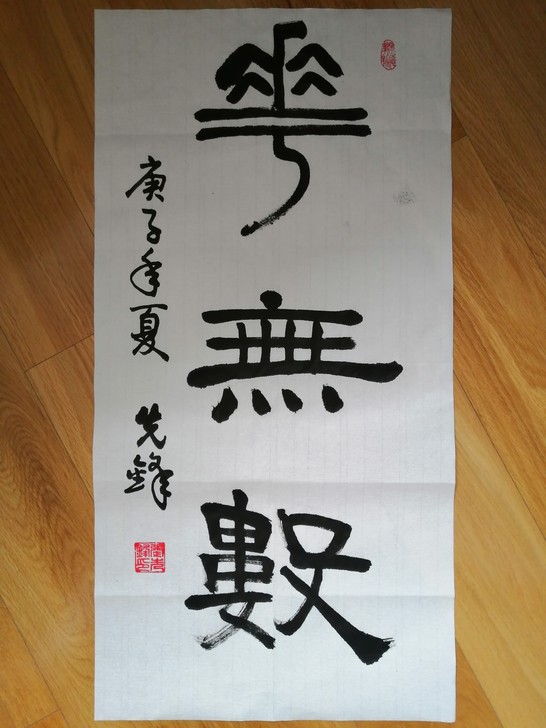 華無數
庚子年夏 先鋒